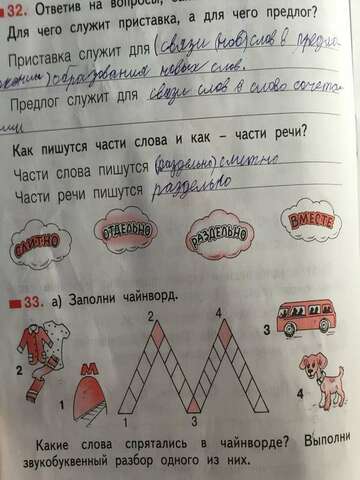 32. Ответив на вопросы,
Для чего служит приставка, а для чего предлог?
Приставка служит для (связи (нов) слов в предло
жении) образования новых слов.
Предлог служит для связи слов в слово сочета
нии
Как пишутся части слова и как – части речи?
Части слова пишутся (раздельно) слитно
Части речи пишутся раздельно
СЛИТНО
ОТДЕЛЬНО
РАЗДЕЛЬНО
ВМЕСТЕ
33. а) Заполни чайнворд.
2
4
3
2
1
М
1
3
4
Какие слова спрятались в чайнворде? Выполни
звукобуквенный разбор одного из них.